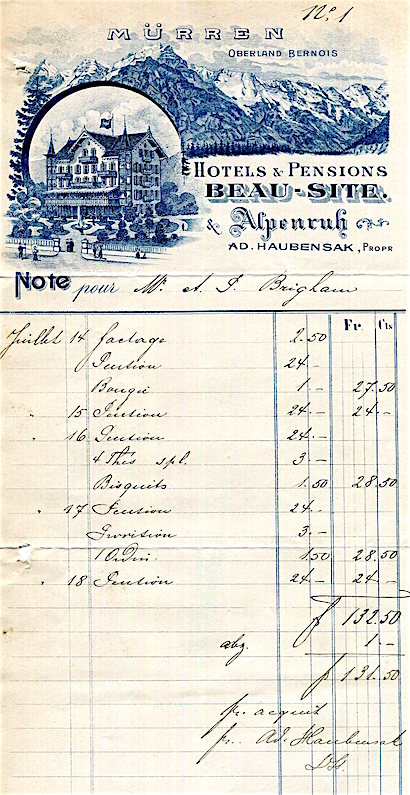 No 1
MÜRREN
OBERLAND BERNOIS
HOTELS & PENSIONS
BEAU-SITE.
& Alpenruh
AD. HAUBENSAK, PROPR
Note pour Mr A. P. Brigham
Fr. Cts
Juillet 14 factage 2.50
Pension 24 –
Bougie 1 – 27.50
" 15 Pension 24 – 24 –
" 16 Pension 24 –
4 Thés spl. 3 –
Bisquits 1.50 28.50
" 17 Pension 24 –
3 –
1 1.50 28.50
" 18 Pension 24 – 24 –
f 132.50
abz. 1 –
f 131.50
pr. acquit
pr. Ad. Haubensak